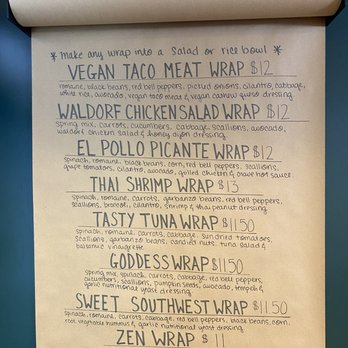 * Make any wrap into a salad or rice bowl *
VEGAN TACO MEAT WRAP $12
romaine, black beans, red bell peppers, pickled onions, cilantro, cabbage,
white rice, avocado, vegan taco meat & vegan cashew queso dressing
WALDORF CHICKEN SALAD WRAP $12
spring mix, carrots, cucumbers, cabbage, scallions, avocado,
waldorf chicken salad & honey dijon dressing
EL POLLO PICANTE WRAP $12
spinach, romaine, black beans, corn, red bell peppers, scallions,
grape tomatoes, cilantro, avocado, grilled chicken & crave hot sauce
THAI SHRIMP WRAP $13
spinach, romaine, carrots, garbanzo beans, red bell peppers,
scallions, broccoli, cilantro, shrimp & thai peanut dressing
TASTY TUNA WRAP $11.50
spinach, romaine, carrots, cabbage, sun dried tomatoes,
scallions, garbanzo beans, candied nuts, tuna salad &
balsamic vinaigrette
GODDESS WRAP $11.50
spring mix, spinach, carrots, cabbage, red bell peppers,
cucumbers, scallions, pumpkin seeds, avocado, tempeh &
garlic nutritional yeast dressing
SWEET SOUTHWEST WRAP $11.50
spinach, romaine, carrots, cabbage, red bell peppers, black beans, corn,
root vegetable hummus & garlic nutritional yeast dressing
ZEN WRAP $11